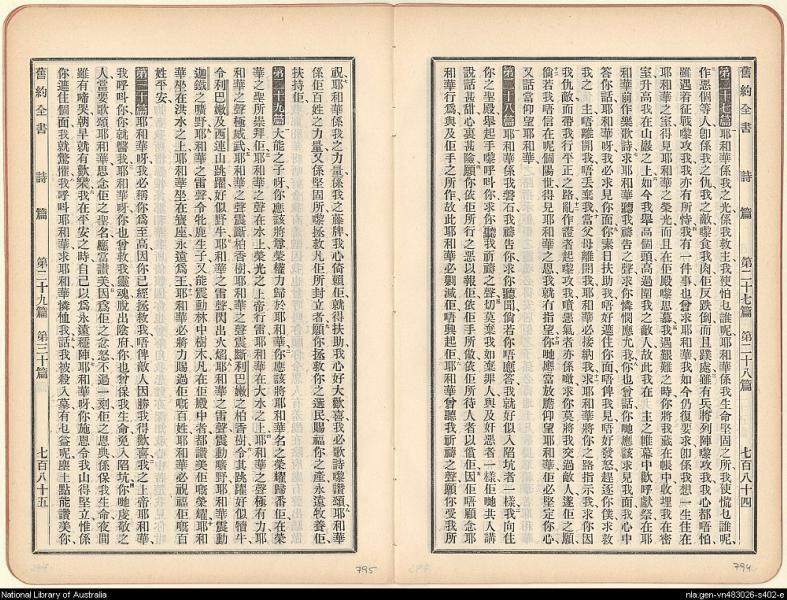 舊約全書 詩篇 第二十七篇 第二十八篇 七百八十四
第二十七篇 耶和華係我之光係我救主我使怕乜誰呢耶和華係我生命堅固之所我使慌乜誰呢
作惡個等人卽係我之仇我之敵嚟食我肉佢反跌倒而且蹼處雖有兵將列陣嚟攻我我心都唔怕
雖遇着征戰嚟攻我我亦有所恃我有一件事也曾求耶和華我如今仍復要求卽係我想一生住在
耶和華之室得見耶和華之榮光而且在佢殿嚟思慕我遇艱難之時你將我藏在帳中收埋我在密
室升高我在山巖之上如今我舉高個頭高過圍我之敵人故此我在 主之帷幕中歡呼獻祭在耶
和華前作樂歌詩求耶和華聽我禱告之聲求你憐憫應允我你也曾話你哋應該求見我面我心中
答你話耶和華呀我必求見你面你素日扶助我唔好遮住你面唔俾我見唔好發怒趕逐你僕求救
我之 主唔離開我唔丟棄我當父母離開我耶和華必接納我求耶和華將你之路指示我求你因
我仇敵而帶我行平正之路亂作證者起嚟攻我噴惡氣者亦係噉求你莫將我交過敵人遂佢之願
倘若我唔信在呢個陽世得見耶和華之恩我就有指望你哋應當放膽仰望耶和華佢必堅定你心
又話當仰望耶和華
第二十八篇 耶和華係我磐石我禱告你求你聽聞倘若你唔應答我就好似入陷坑者一樣我向住
你之聖殿舉起手嚟呼叫你求你聽我祈禱之聲切莫棄我如棄罪人與及奸惡者一樣佢哋共人講
說話甚甜心裏甚險願你依佢所行之惡以報佢依佢手所做依佢所待人者以償佢因佢唔顧念耶
和華行為與及佢手之所作故此耶和華必剿滅佢唔興起佢耶和華曾聽我祈禱之聲願你受我所
794
祝耶和華係我之力量係我之藤牌我心倚賴佢就得扶助我心好大歡喜我必歌詩嚟讚頌耶和華
係佢百姓之力量又係堅固所嚟拯救凡佢所封立者願你拯救你之選民賜福你之產永遠牧養佢
扶持佢
第二十九篇 大能之子呀你應該將尊榮權力歸於耶和華你應該將耶和華名之榮耀歸番佢在榮
華之聖所崇拜佢耶和華之聲在水上榮光之上帝行雷耶和華在大水之上耶和華之聲極有力耶
和華之聲極威武耶和華之聲震斷柏香樹耶和華之聲震斷利巴嫩之柏香樹令其跳躍好似犢牛
令利巴嫩及西連山跳躍好似野牛耶和華之雷聲閃出火焰耶和華之雷聲震動曠野耶和華震動
迦鐵之曠野耶和華之雷聲令牝鹿生子又能震動林中樹木凡在佢殿中者都讚美佢嘅榮耀耶和
華坐在洪水之上耶和華坐在寶座永遠為王耶和華必將力賜過佢嘅百姓耶和華必祝福佢嘅百
姓平安
第三十篇 耶和華呀我必稱你為至高因你已經拯救我唔俾敵人因勝我得歡喜我之上帝耶和華
我呼叫你你就醫我耶和華呀你也曾救我靈魂脫出陰府你也曾保我生命免入陷坑你哋虔敬之
人當要歌頌耶和華思念佢之聖名應當讚美因為佢之忿怒不過一刻佢之恩典係保我生命夜間
雖有啼哭朝早就有歡樂我在平安之時自己以為永遠穩陣耶和華呀你施恩令我山得堅立惟係
你遮住個面我就驚惶我呼叫耶和華求耶和華憐恤我話我被殺入墓有乜益呢塵土點能讚美你
舊約全書 詩篇 第二十九篇 第三十篇 七百八十五
795
National Library of Australia
nla.gen-vn483026-s402-e